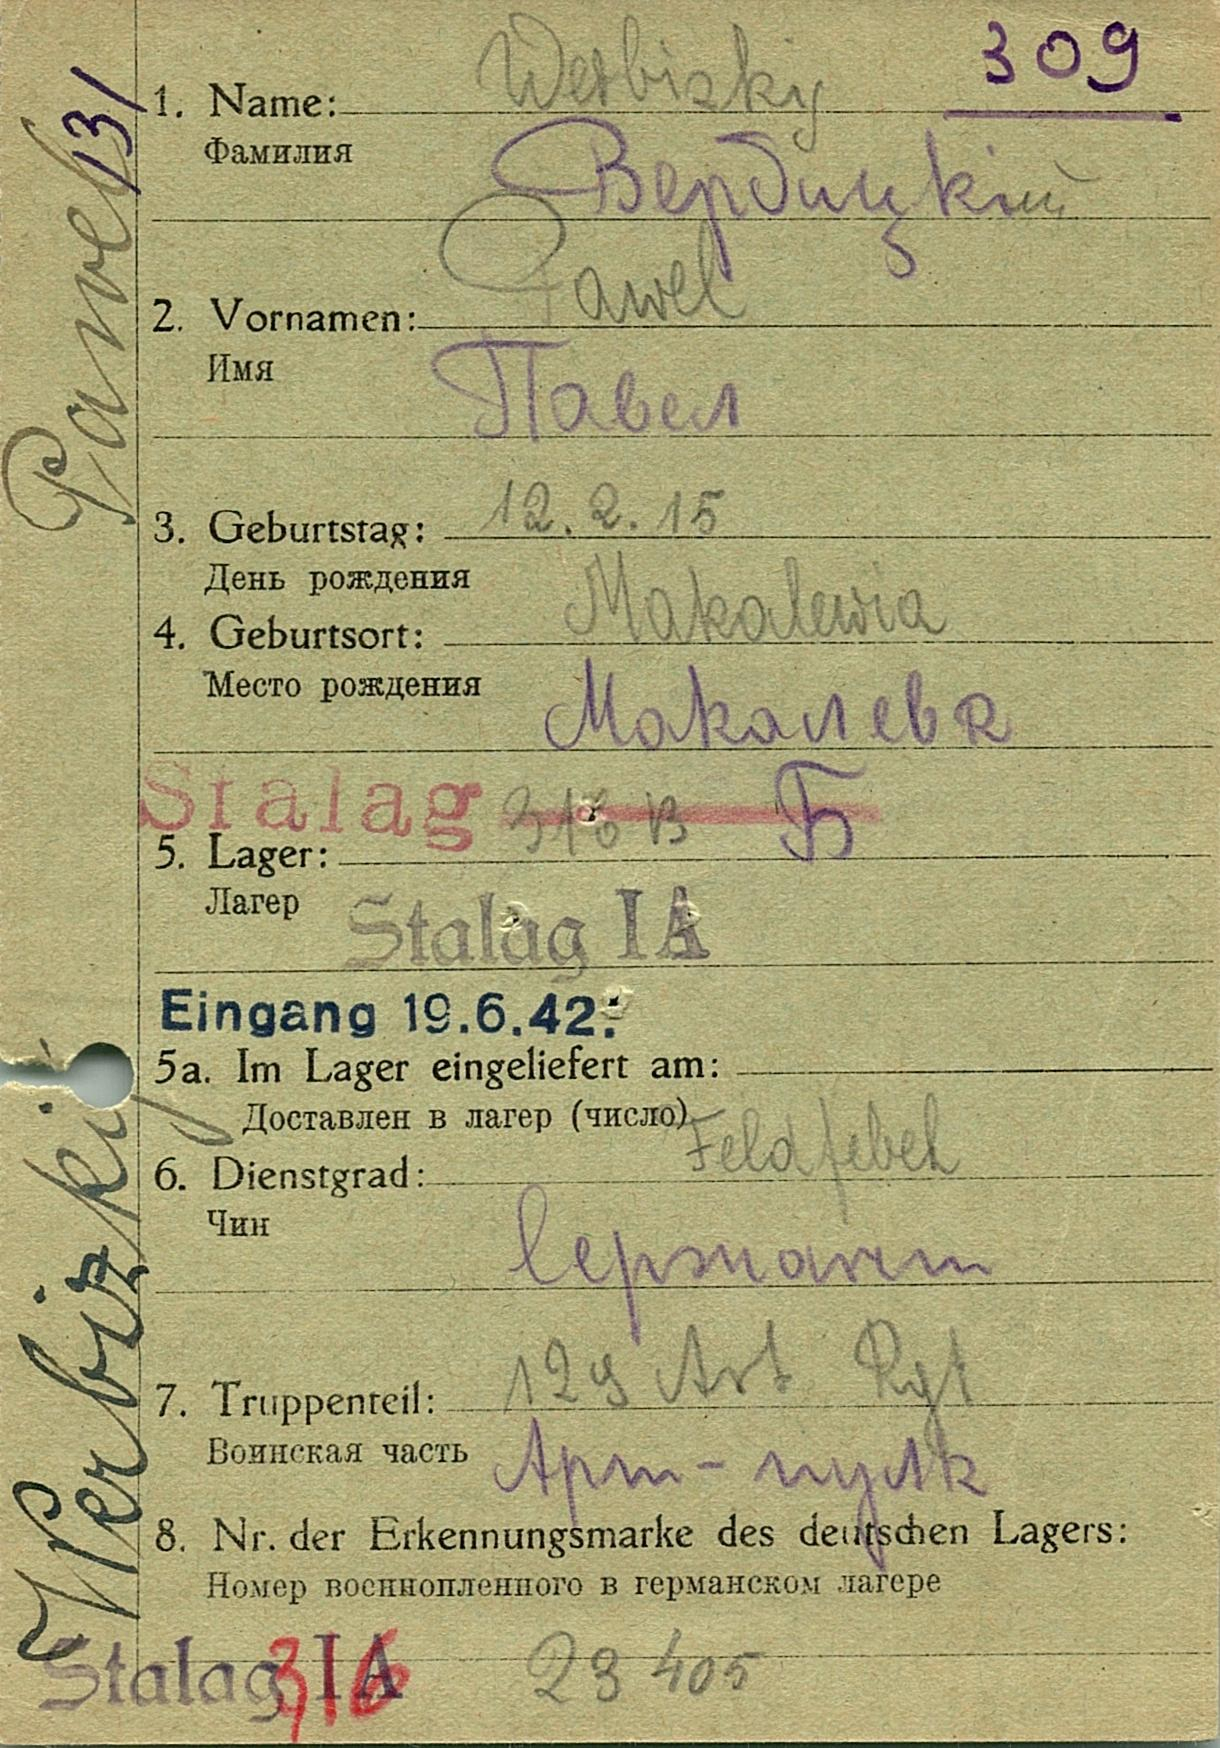 309
Werbizky
1. Name:
Фамилия
Вербицкий
Pawel
2. Vornamen:
Имя
Павел
3. Geburtstag: 12.2.15
День рождения
Makalewia
4. Geburtsort:
Место рождения
Макалевка
Stalag 316 B Б
5. Lager:
Лагер
Stalag IA
Eingang 19.6.42.
5a. Im Lager eingeliefert am:
Доставлен в лагер (число)
Feldfebel
6. Dienstgrad:
Чин
Сержант
7. Truppenteil: 129 Art Rgt
Воинская часть Арт-пулк
8. Nr. der Erkennungsmarke des deutschen Lagers:
Номер военнопленного в германском лагере
Stalag IA 316 23405
Werbizkij Pawel 131